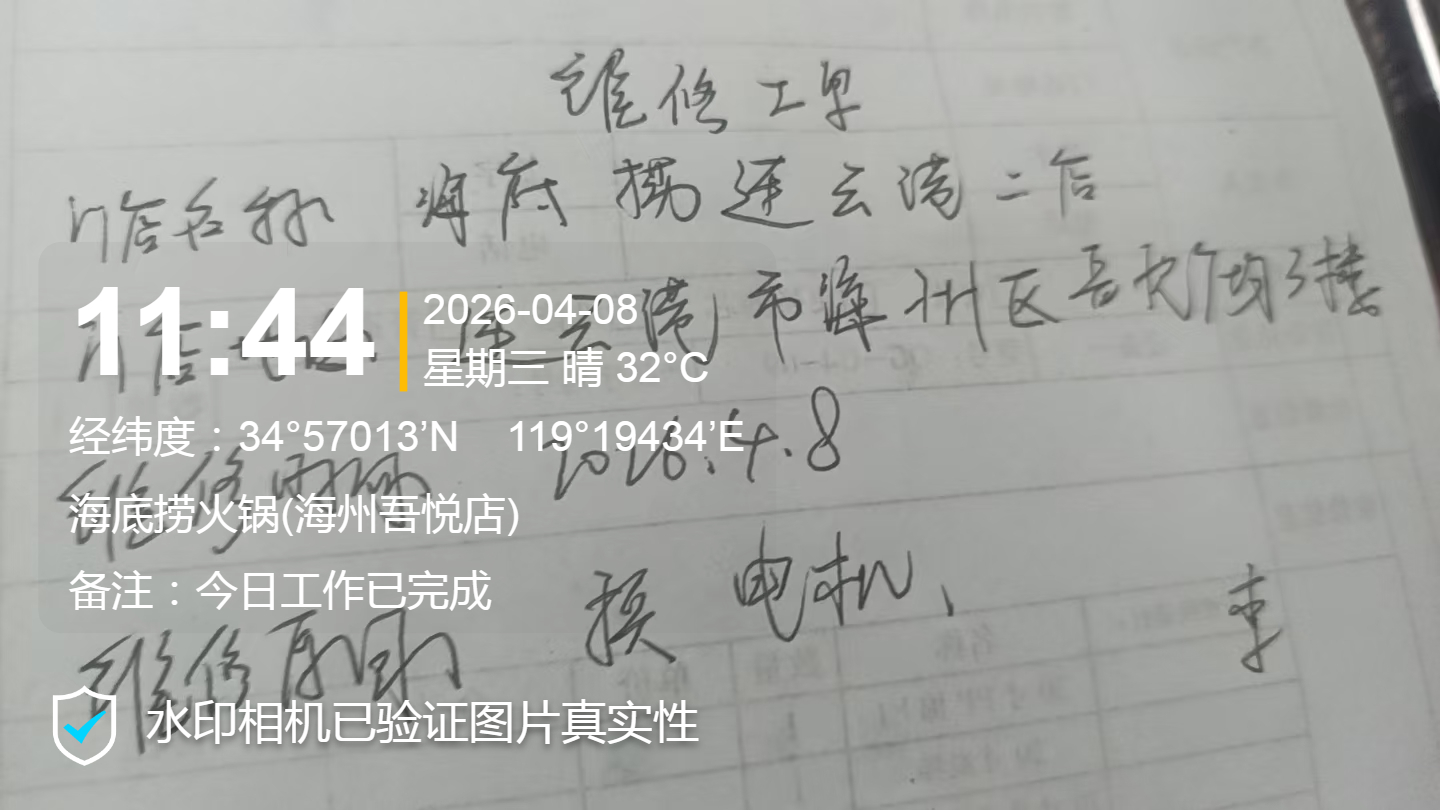 维修工单
门店名称 海底捞连云港二店
门店地址 连云港市海州区吾悦广场3楼
11:44
2026-04-08
星期三 晴 32°C
经纬度：34°57013’N 119°19434’E
维修时间 2026.4.8
海底捞火锅(海州吾悦店)
备注：今日工作已完成
换电机、
维修
水印相机已验证图片真实性